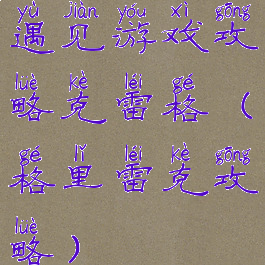 yù jiàn yóu xì gōng
遇见游戏攻
lüè kè léi gé
略克雷格（
gé lǐ léi kè gōng
格里雷克攻
lüè
略）